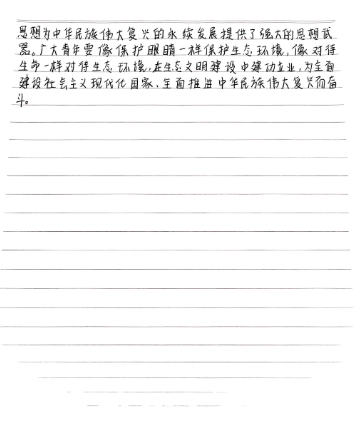 思想为中华民族伟大复兴的永续发展提供了强大的思想武
器。广大青年要像保护眼睛一样保护生态环境,像对待
生命一样对待生态环境,在生态文明建设中建功立业,为全面
建设社会主义现代化国家、全面推进中华民族伟大复兴而奋
斗。